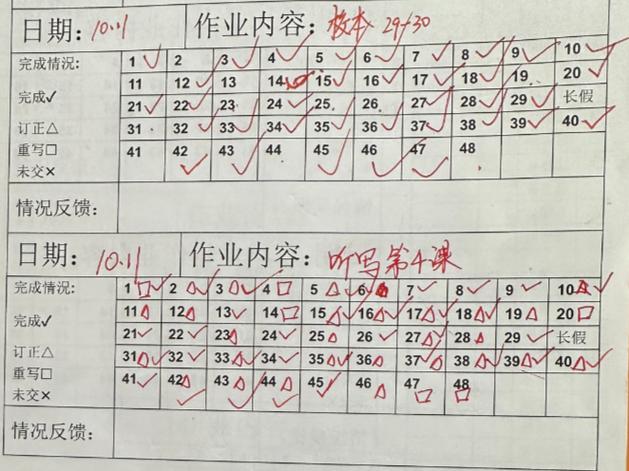 日期：10.11 作业内容：校本 29-30
完成情况： 1✓ 2 3✓ 4✓ 5✓ 6✓ 7✓ 8✓ 9✓ 10✓
11 12✓ 13 14✓ 15✓ 16✓ 17✓ 18✓ 19 20✓
完成✓
21✓ 22✓ 23 24✓ 25 26 27✓ 28✓ 29✓ 长假
订正△ 31 32✓ 33✓ 34✓ 35✓ 36✓ 37✓ 38✓ 39✓ 40✓
重写□ 41 42✓ 43✓ 44 45✓ 46✓ 47✓ 48
未交×
情况反馈：
日期：10.11 作业内容：听写第4课
完成情况： 1□✓ 2△✓ 3△✓ 4□ 5△✓ 6△ 7✓ 8✓ 9✓ 10△✓
11△ 12△ 13✓ 14□ 15△✓ 16△✓ 17△✓ 18△✓ 19△ 20□
完成✓
21✓ 22✓ 23△ 24✓ 25△ 26✓ 27△✓ 28△ 29✓ 长假
订正△ 31△✓ 32✓ 33△✓ 34✓ 35△✓ 36△ 37△✓ 38△✓ 39△✓ 40△✓
重写□ 41✓ 42△✓ 43△✓ 44△✓ 45✓ 46△ 47□ 48□
未交×
情况反馈：